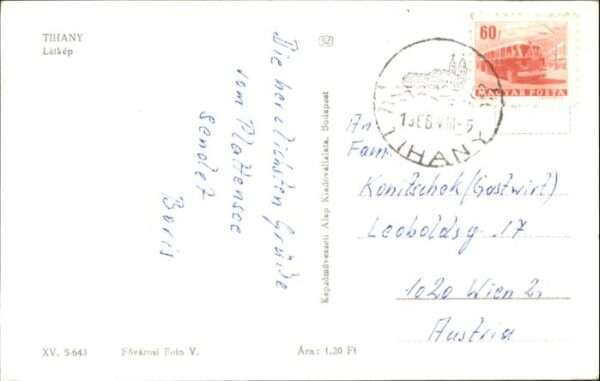 TIHANY
Látkép
Die herzlichsten Grüße
vom Plattensee
sendet
Boris
Képzőművészeti Alap Kiadóvállalata, Budapest
60f
MAGYAR POSTA
TIHANY
An
Fam.
Konitschek (Gastwirt)
Leopoldsg. 17
1020 Wien 2,
Austria
XV. 5-643
Fővárosi Foto V.
Ára: 1.20 Ft